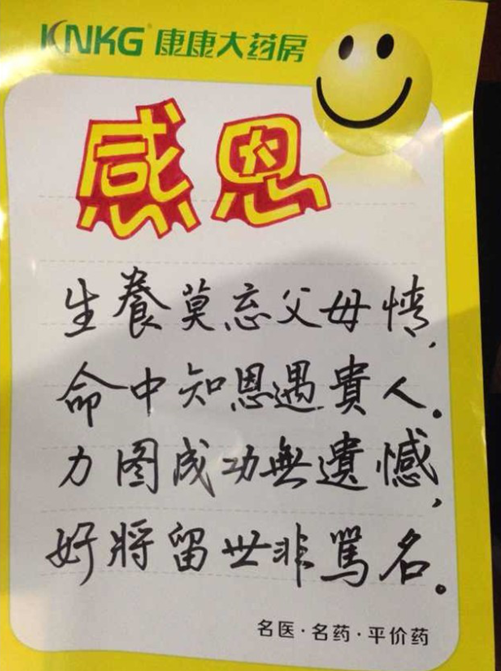 KNKG® 康康大药房
感恩
生養莫忘父母情,
命中知恩遇貴人。
力图成功無遺憾,
好將留世非罵名。
名医·名药·平价药